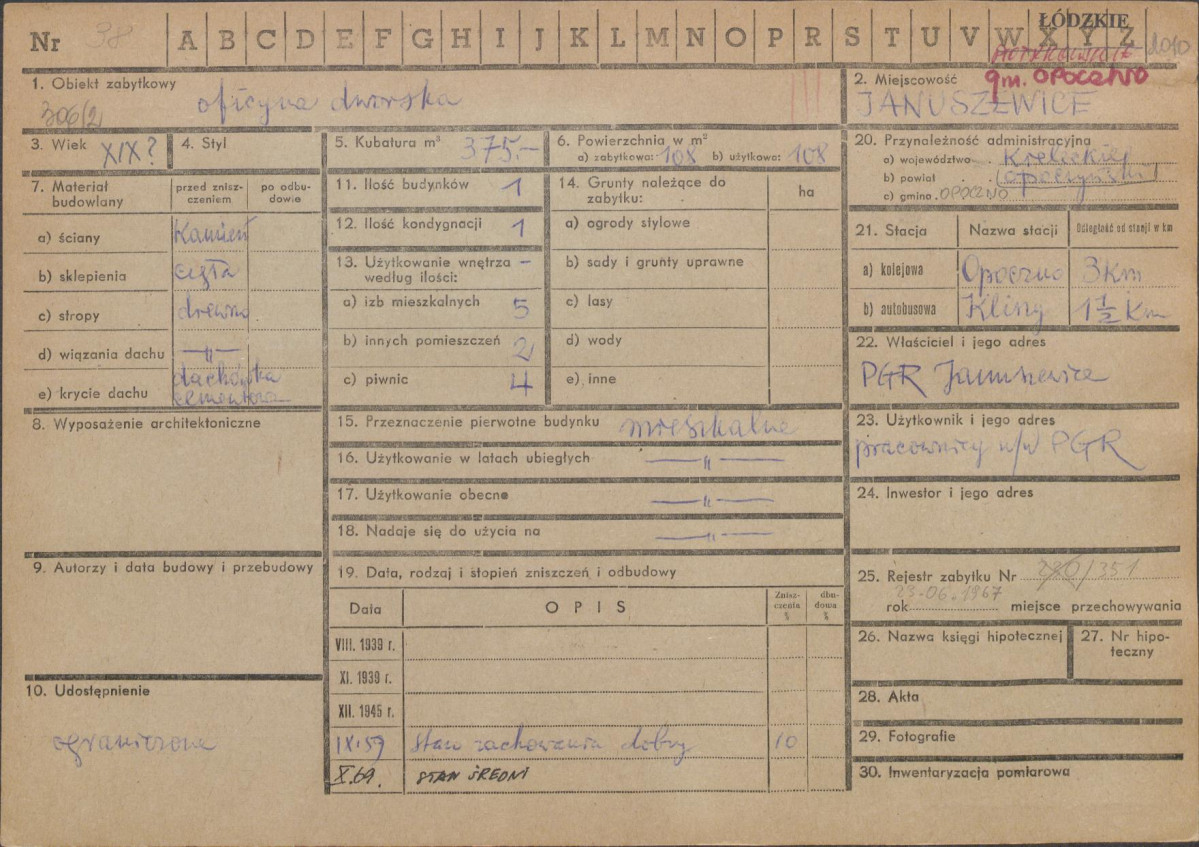 Nr 38 A B C D E F G H I J K L M N O P R S T U V W X Y Z
ŁÓDZKIE
PIOTRKOWSKIE
gm. OPOCZNO
1. Obiekt zabytkowy
306/2
oficyna dworska
2. Miejscowość
JANUSZEWICE
3. Wiek XIX?
4. Styl
5. Kubatura m³ 375.-
6. Powierzchnia w m²
a) zabytkowa: 108 b) użytkowa: 108
20. Przynależność administracyjna
a) województwo Kieleckie
b) powiat opoczyński
c) gmina OPOCZNO
7. Materiał budowlany
przed zniszczeniem
po odbudowie
a) ściany Kamień
b) sklepienia cegła
c) stropy drewno
d) wiązania dachu —"—
e) krycie dachu dachówka cementowa
11. Ilość budynków 1
12. Ilość kondygnacji 1
13. Użytkowanie wnętrza – według ilości:
a) izb mieszkalnych 5
b) innych pomieszczeń 2
c) piwnic 4
14. Grunty należące do zabytku:
ha
a) ogrody stylowe
b) sady i grunty uprawne
c) lasy
d) wody
e) inne
21. Stacja
Nazwa stacji
Odległość od stacji w km
a) kolejowa Opoczno 3 Km
b) autobusowa Kliny 1½ Km
22. Właściciel i jego adres
PGR Januszewice
8. Wyposażenie architektoniczne
15. Przeznaczenie pierwotne budynku mieszkalne
16. Użytkowanie w latach ubiegłych —"—
17. Użytkowanie obecne —"—
18. Nadaje się do użycia na —"—
23. Użytkownik i jego adres
pracownicy w/w PGR
24. Inwestor i jego adres
9. Autorzy i data budowy i przebudowy
19. Data, rodzaj i stopień zniszczeń i odbudowy
Data
OPIS
Zniszczenia %
dbudowa %
VIII. 1939 r.
XI. 1939 r.
XII. 1945 r.
IX.59 stan zachowania dobry 10
X.69. STAN ŚREDNI
25. Rejestr zabytku Nr /351
23-06.1967
rok miejsce przechowywania
26. Nazwa księgi hipotecznej
27. Nr hipoteczny
10. Udostępnienie
ograniczone
28. Akta
29. Fotografie
30. Inwentaryzacja pomiarowa